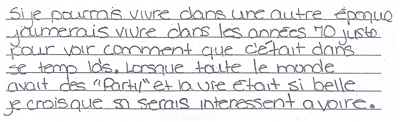 Si je pourrais vivre dans une autre époque
j'aumerais vivre dans les années 70 juste
pour voir comment que c'était dans
se temp lás. Lorsque toute le monde
avait des "Party" et la vie était si belle
je crois que sa serais interessent a voire.